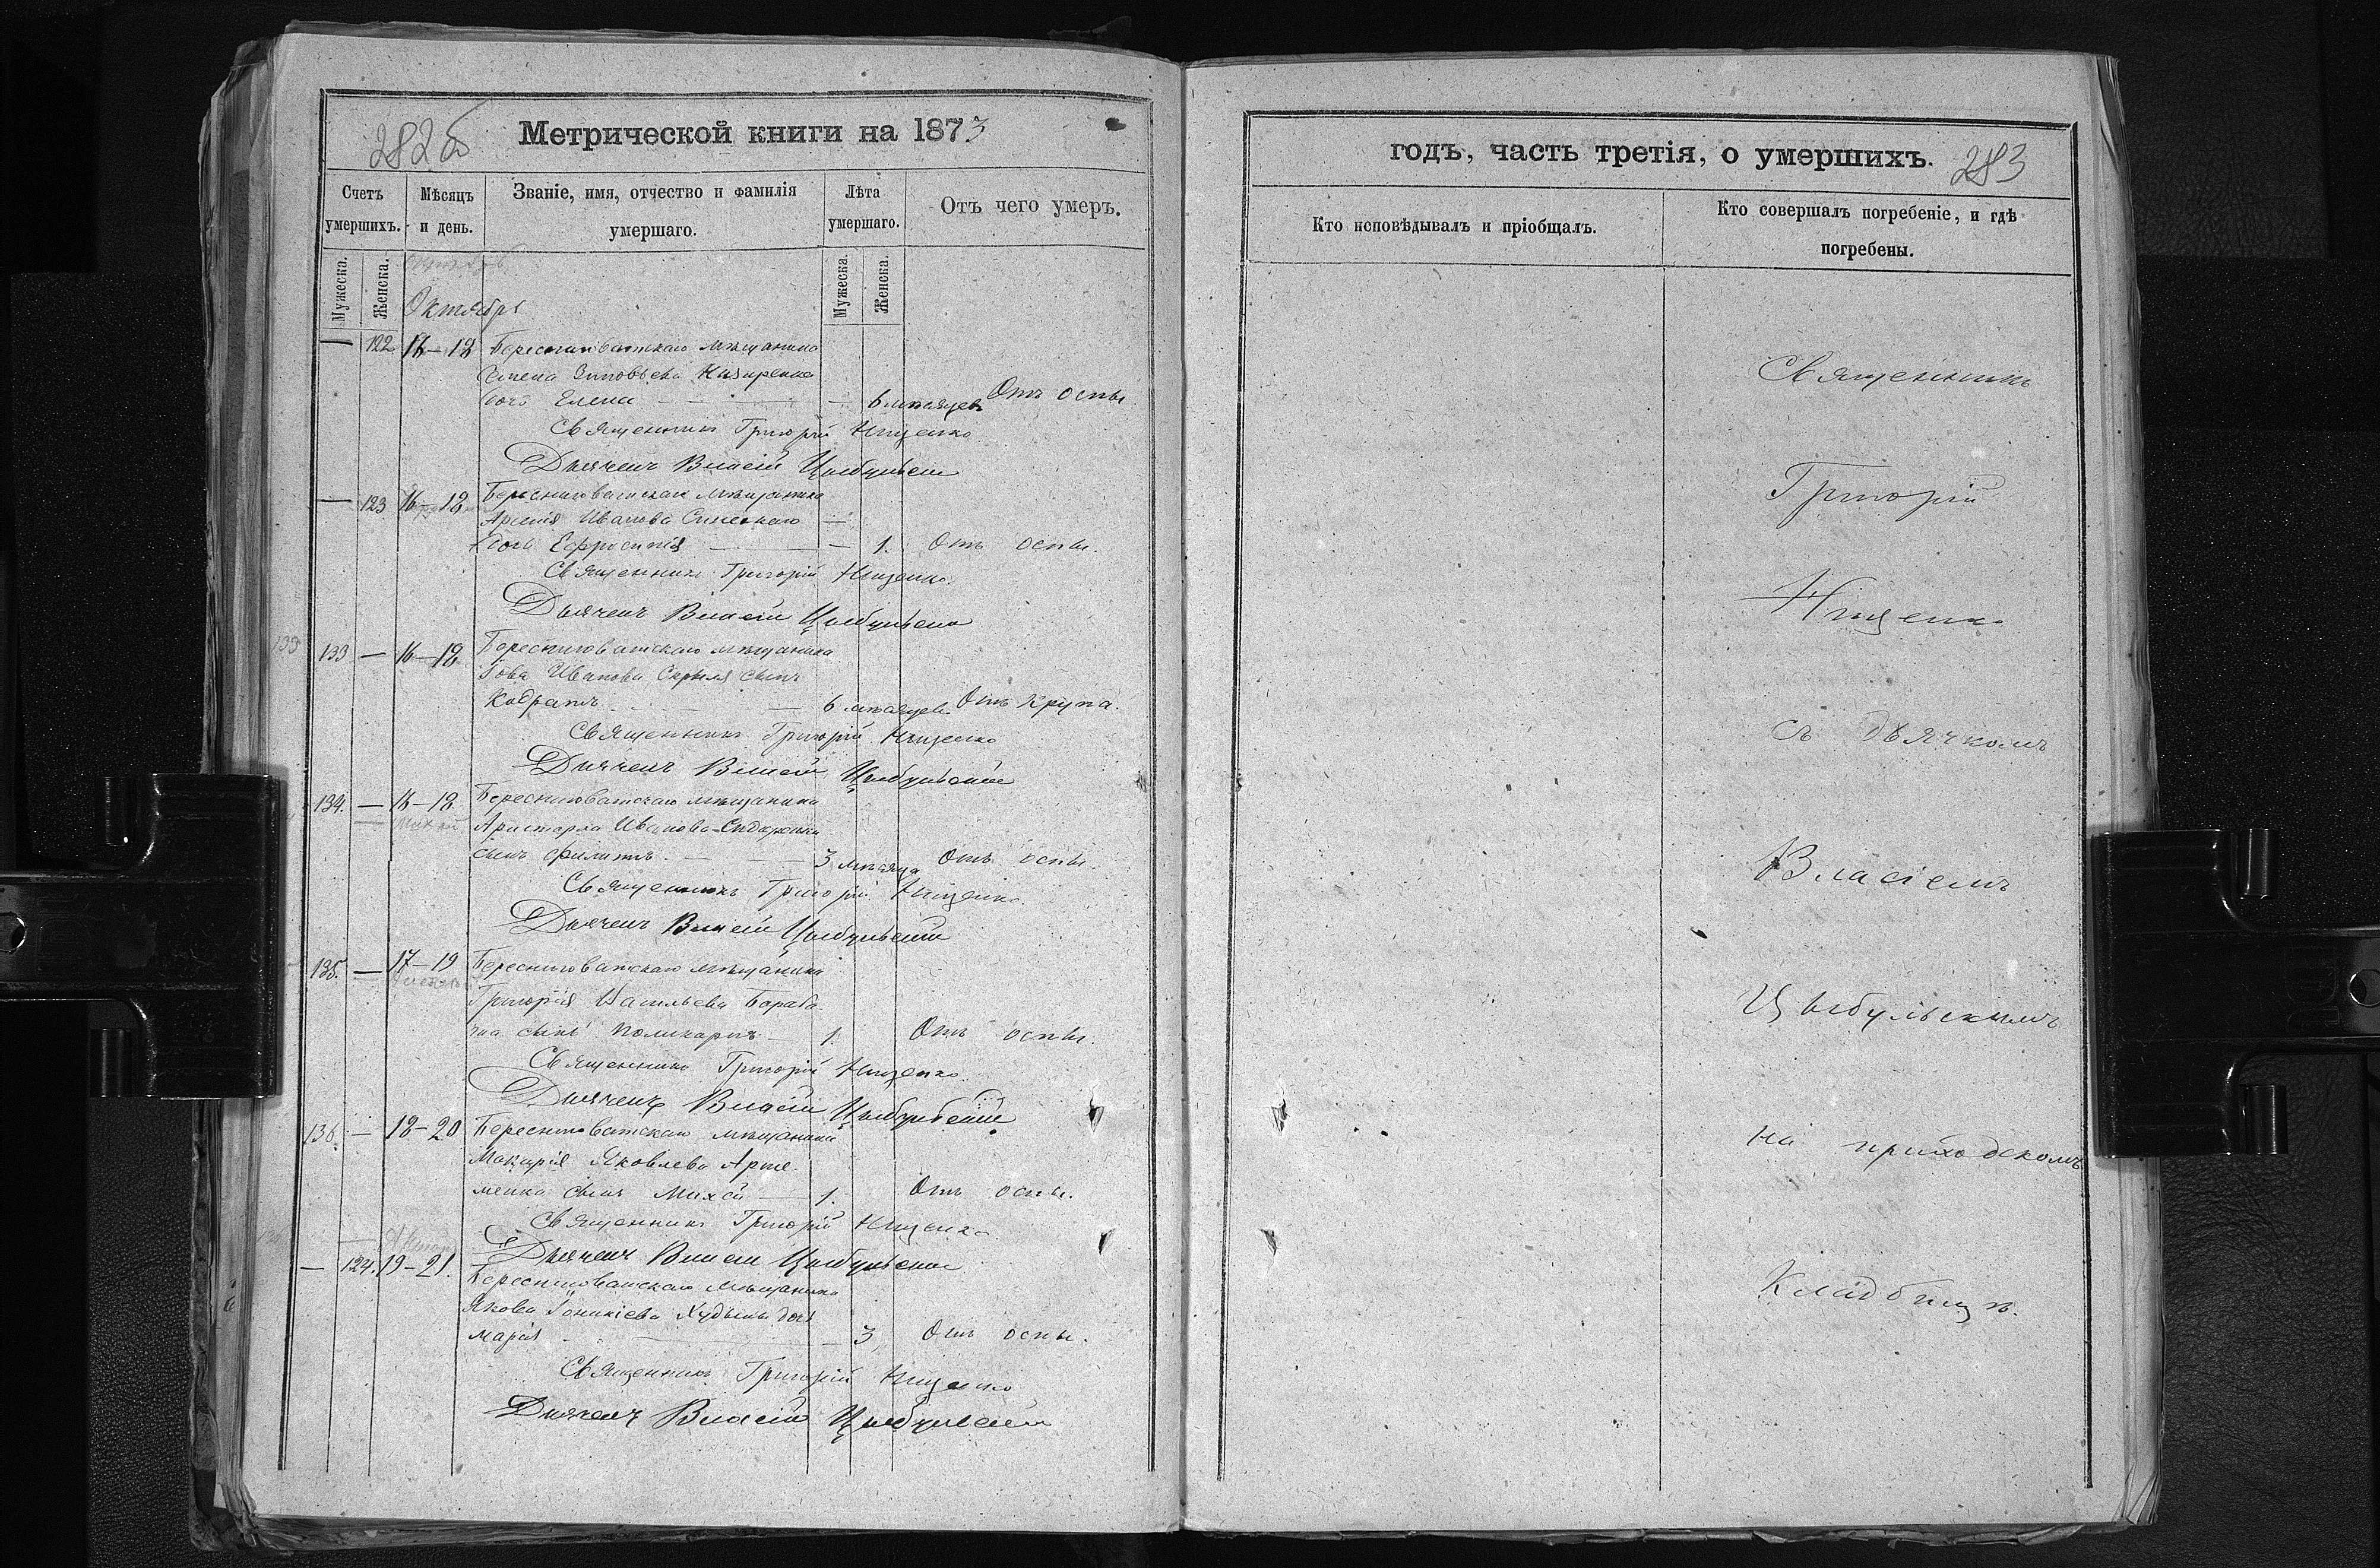 282б Метрической книги на 1873
Счетъ умершихъ.
Мѣсяцъ и день.
Званіе, имя, отчество и фамилія умершаго.
Лѣта умершаго.
Отъ чего умеръ.
Мужеска. Женска.
Мужеска. Женска.
Октябрь
— 122 16–18 Береснеговатскаго мѣщанина
Зиновьева
дочь Елена — — 6 мѣсяцев Отъ оспы
Священникъ Григорій Нищенко
Дьячекъ Власій Цыбульскій
— 123 16–18 Береснеговатскаго мѣщанина
Иванова
дочь Ефросинія — — 1. Отъ оспы.
Священникъ Григорій Нищенко.
Дьячекъ Власій Цыбульскій
133 — 16–18 Береснеговатскаго мѣщанина
Іова Иванова сынъ
Кодратъ — 6 мѣсяцев Отъ Крупа.
Священникъ Григорій Нищенко
Дьячекъ Власій Цыбульскій
134. — 16–18 Береснеговатскаго мѣщанина
Аристарха Иванова Сидоренка
сынъ Филиппъ. — — 3 мѣсяца Отъ оспы.
Священникъ Григорій Нищенко.
Дьячекъ Власій Цыбульскій
135. — 17–19 Береснеговатскаго мѣщанина
Григорія Васильева
сынъ Поликарпъ — 1. Отъ оспы.
Священникъ Григорій Нищенко.
Дьячекъ Власій Цыбульскій
136. — 18–20 Береснеговатскаго мѣщанина
Макарія Яковлева Арте-
менка сынъ Михей — 1. Отъ оспы.
Священникъ Григорій Нищенко.
Дьячекъ Власій Цыбульскій
— 124. 19–21. Береснеговатскаго мѣщанина
Якова Іоникіева дочь
Марія — — 3 Отъ оспы.
Священникъ Григорій Нищенко
Дьячекъ Власій Цыбульскій
годъ, часть третія, о умершихъ. 283
Кто исповѣдывалъ и пріобщалъ.
Кто совершалъ погребеніе, и гдѣ погребены.
Священникъ
Григорій
Нищенко
съ дьячкомъ
Власіемъ
Цыбульскимъ
на приходскомъ
Кладбищѣ.